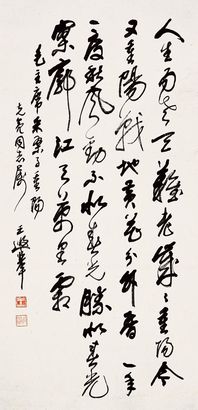 人生易老天難老歲〻重陽今
又重陽戰地黃花分外香一年
一度秋風勁不似春光勝似春光
寥廓江天萬里霜
毛主席采桑子重陽
亮同志屬
王遐舉